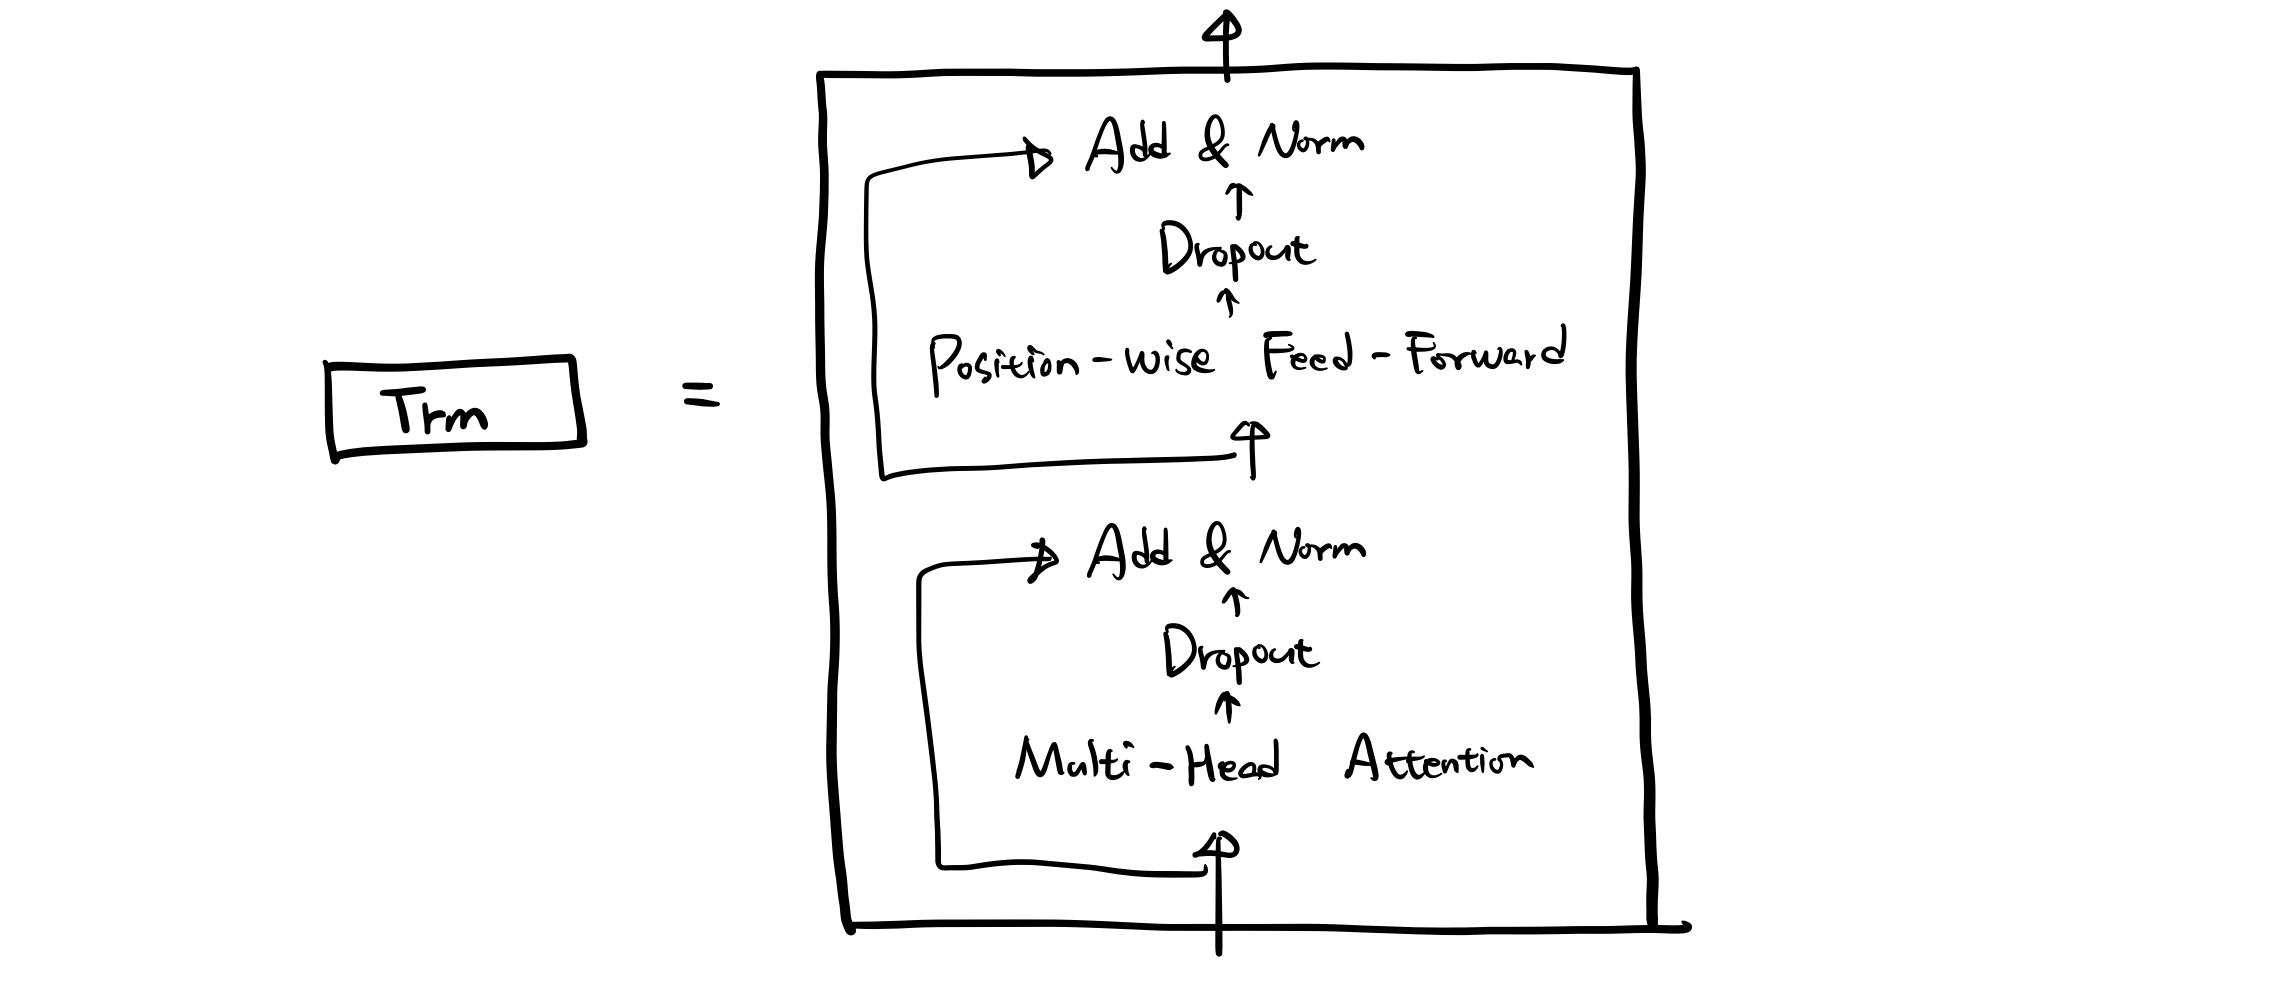 Trm
=
Add & Norm
Dropout
Position-wise Feed-Forward
Add & Norm
Dropout
Multi-Head Attention